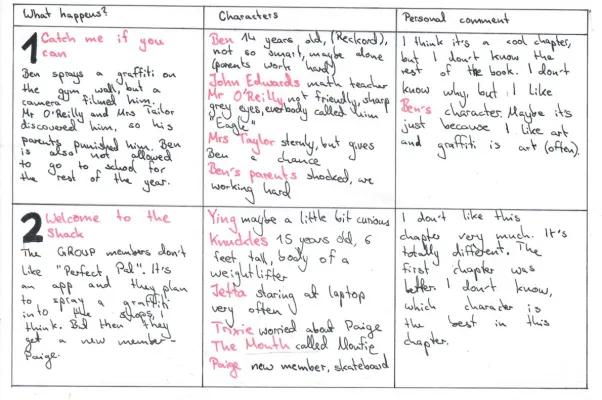 What happens?
Characters
Personal comment
1 Catch me if you
can
Ben sprays a graffiti on
the gym wall, but a
camera filmed him.
Mr O'Reilly and Mrs Tailor
discovered him, so his
parents punished him. Ben
is also not allowed
to go to school for
the rest of the year.
Ben 14 years old, (Reckord),
not so smart, maybe alone
(parents work hard)
John Edwards math teacher
Mr O'Reilly not friendly, sharp
grey eyes, everybody called him
"Eagle"
Mrs Taylor sternly, but gives
Ben a chance
Ben's parents shocked, are
working hard
I think it's a cool chapter,
but I don't know the
rest of the book. I don't
know why, but I like
Ben's character. Maybe it's
just because I like art
and graffiti is art (often).
2 Welcome to the
Shack
The GROUP members don't
like "Perfect Pal". It's
an app and they plan
to spray a graffiti
into the shops, I
think. But then they
get a new member-
Paige.
Ying maybe a little bit curious
Knuckles 15 years old, 6
feet, tall, body of a
weightlifter
Jetta staring at laptop
very often
Trixie worried about Paige
The Mouth called
Paige new member, skateboard
I don't like this
chapter very much. It's
totally different. The
first chapter was
better. I don't know,
which character is
the best in this
chapter.